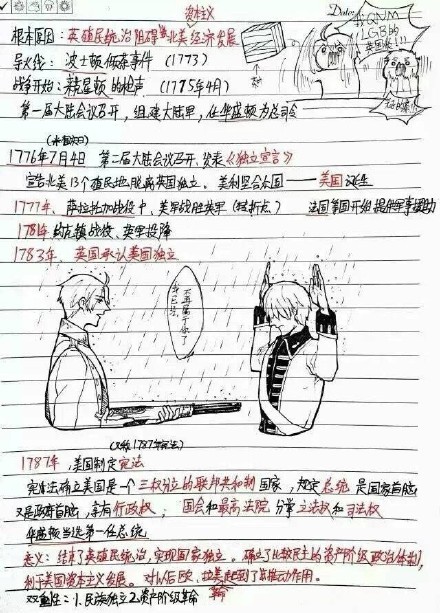 资本主义
Date:
根本原因：英殖民统治阻碍北美经济发展
导火线：波士顿倾茶事件（1773）
战争开始：莱克星顿的枪声（1775年4月）
第一届大陆会议召开，组建大陆军，任华盛顿为总司令
QNM
LGB的
英国佬!!!
(永恒的日)
1776年7月4日 第二届大陆会议召开、发表《独立宣言》
宣告北美13个殖民地脱离英国独立。美利坚合众国——美国诞生
1777年、萨拉托加战役中、美军战胜英军（转折点） 法国等国开始提供军事援助
1781年约克镇战役、英军投降
1783年、英国承认美国独立
我已经
不再属于你了
(又称1787年宪法)
1787年，美国制定宪法
宪法确立美国是一个三权分立的联邦共和制国家，规定总统是国家首脑
又是政府首脑，享有行政权；国会和最高法院分掌立法权和司法权
华盛顿当选第一任总统
意义：结束了英殖民统治，实现国家独立。确立了比较民主的资产阶级政治体制，
利于美国资本主义发展。对以后欧、拉美起到了推动作用。
革命
双重性：1.民族独立 2.资产阶级革命